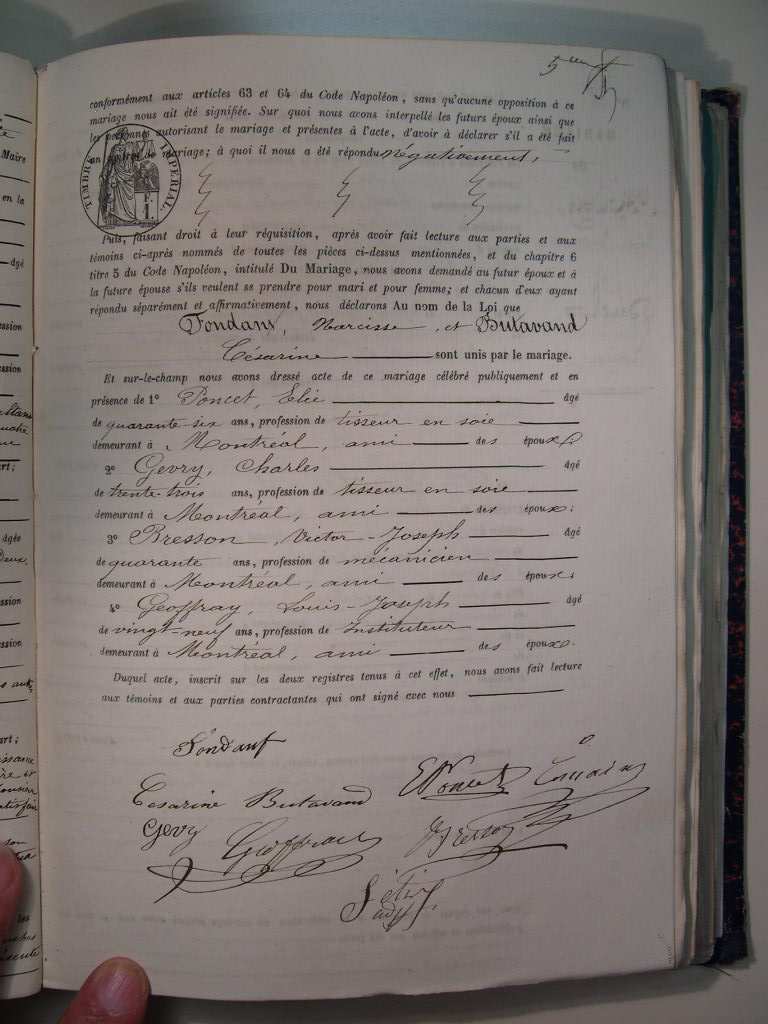 5
conformément aux articles 63 et 64 du Code Napoléon, sans qu'aucune opposition à ce
mariage nous ait été signifiée. Sur quoi nous avons interpellé les futurs époux ainsi que
les personnes autorisant le mariage et présentes à l'acte, d'avoir à déclarer s'il a été fait
un contrat de mariage; à quoi il nous a été répondu négativement.
TIMBRE IMPERIAL
F.
1.
Puis, faisant droit à leur réquisition, après avoir fait lecture aux parties et aux
témoins ci-après nommés de toutes les pièces ci-dessus mentionnées, et du chapitre 6
titre 5 du Code Napoléon, intitulé Du Mariage, nous avons demandé au futur époux et à
la future épouse s'ils veulent se prendre pour mari et pour femme; et chacun d'eux ayant
répondu séparément et affirmativement, nous déclarons Au nom de la Loi que
Narcisse, et Butavand
Césarine sont unis par le mariage.
Et sur-le-champ nous avons dressé acte de ce mariage célébré publiquement et en
présence de 1° Poncet, Elie âgé
de quarante six ans, profession de tisseur en soie
demeurant à Montréal, ami des époux
2° Gevry, Charles âgé
de trente-trois ans, profession de tisseur en soie
demeurant à Montréal, ami des époux.
3° Bresson, Victor-Joseph âgé
de quarante ans, profession de mécanicien
demeurant à Montréal, ami des époux.
4° Geoffray, Louis-Joseph âgé
de vingt-neuf ans, profession de Instituteur
demeurant à Montréal, ami des époux.
Duquel acte, inscrit sur les deux registres tenus à cet effet, nous avons fait lecture
aux témoins et aux parties contractantes qui ont signé avec nous
Cesarine Butavand EPoncet
Gevry Geoffray Bresson